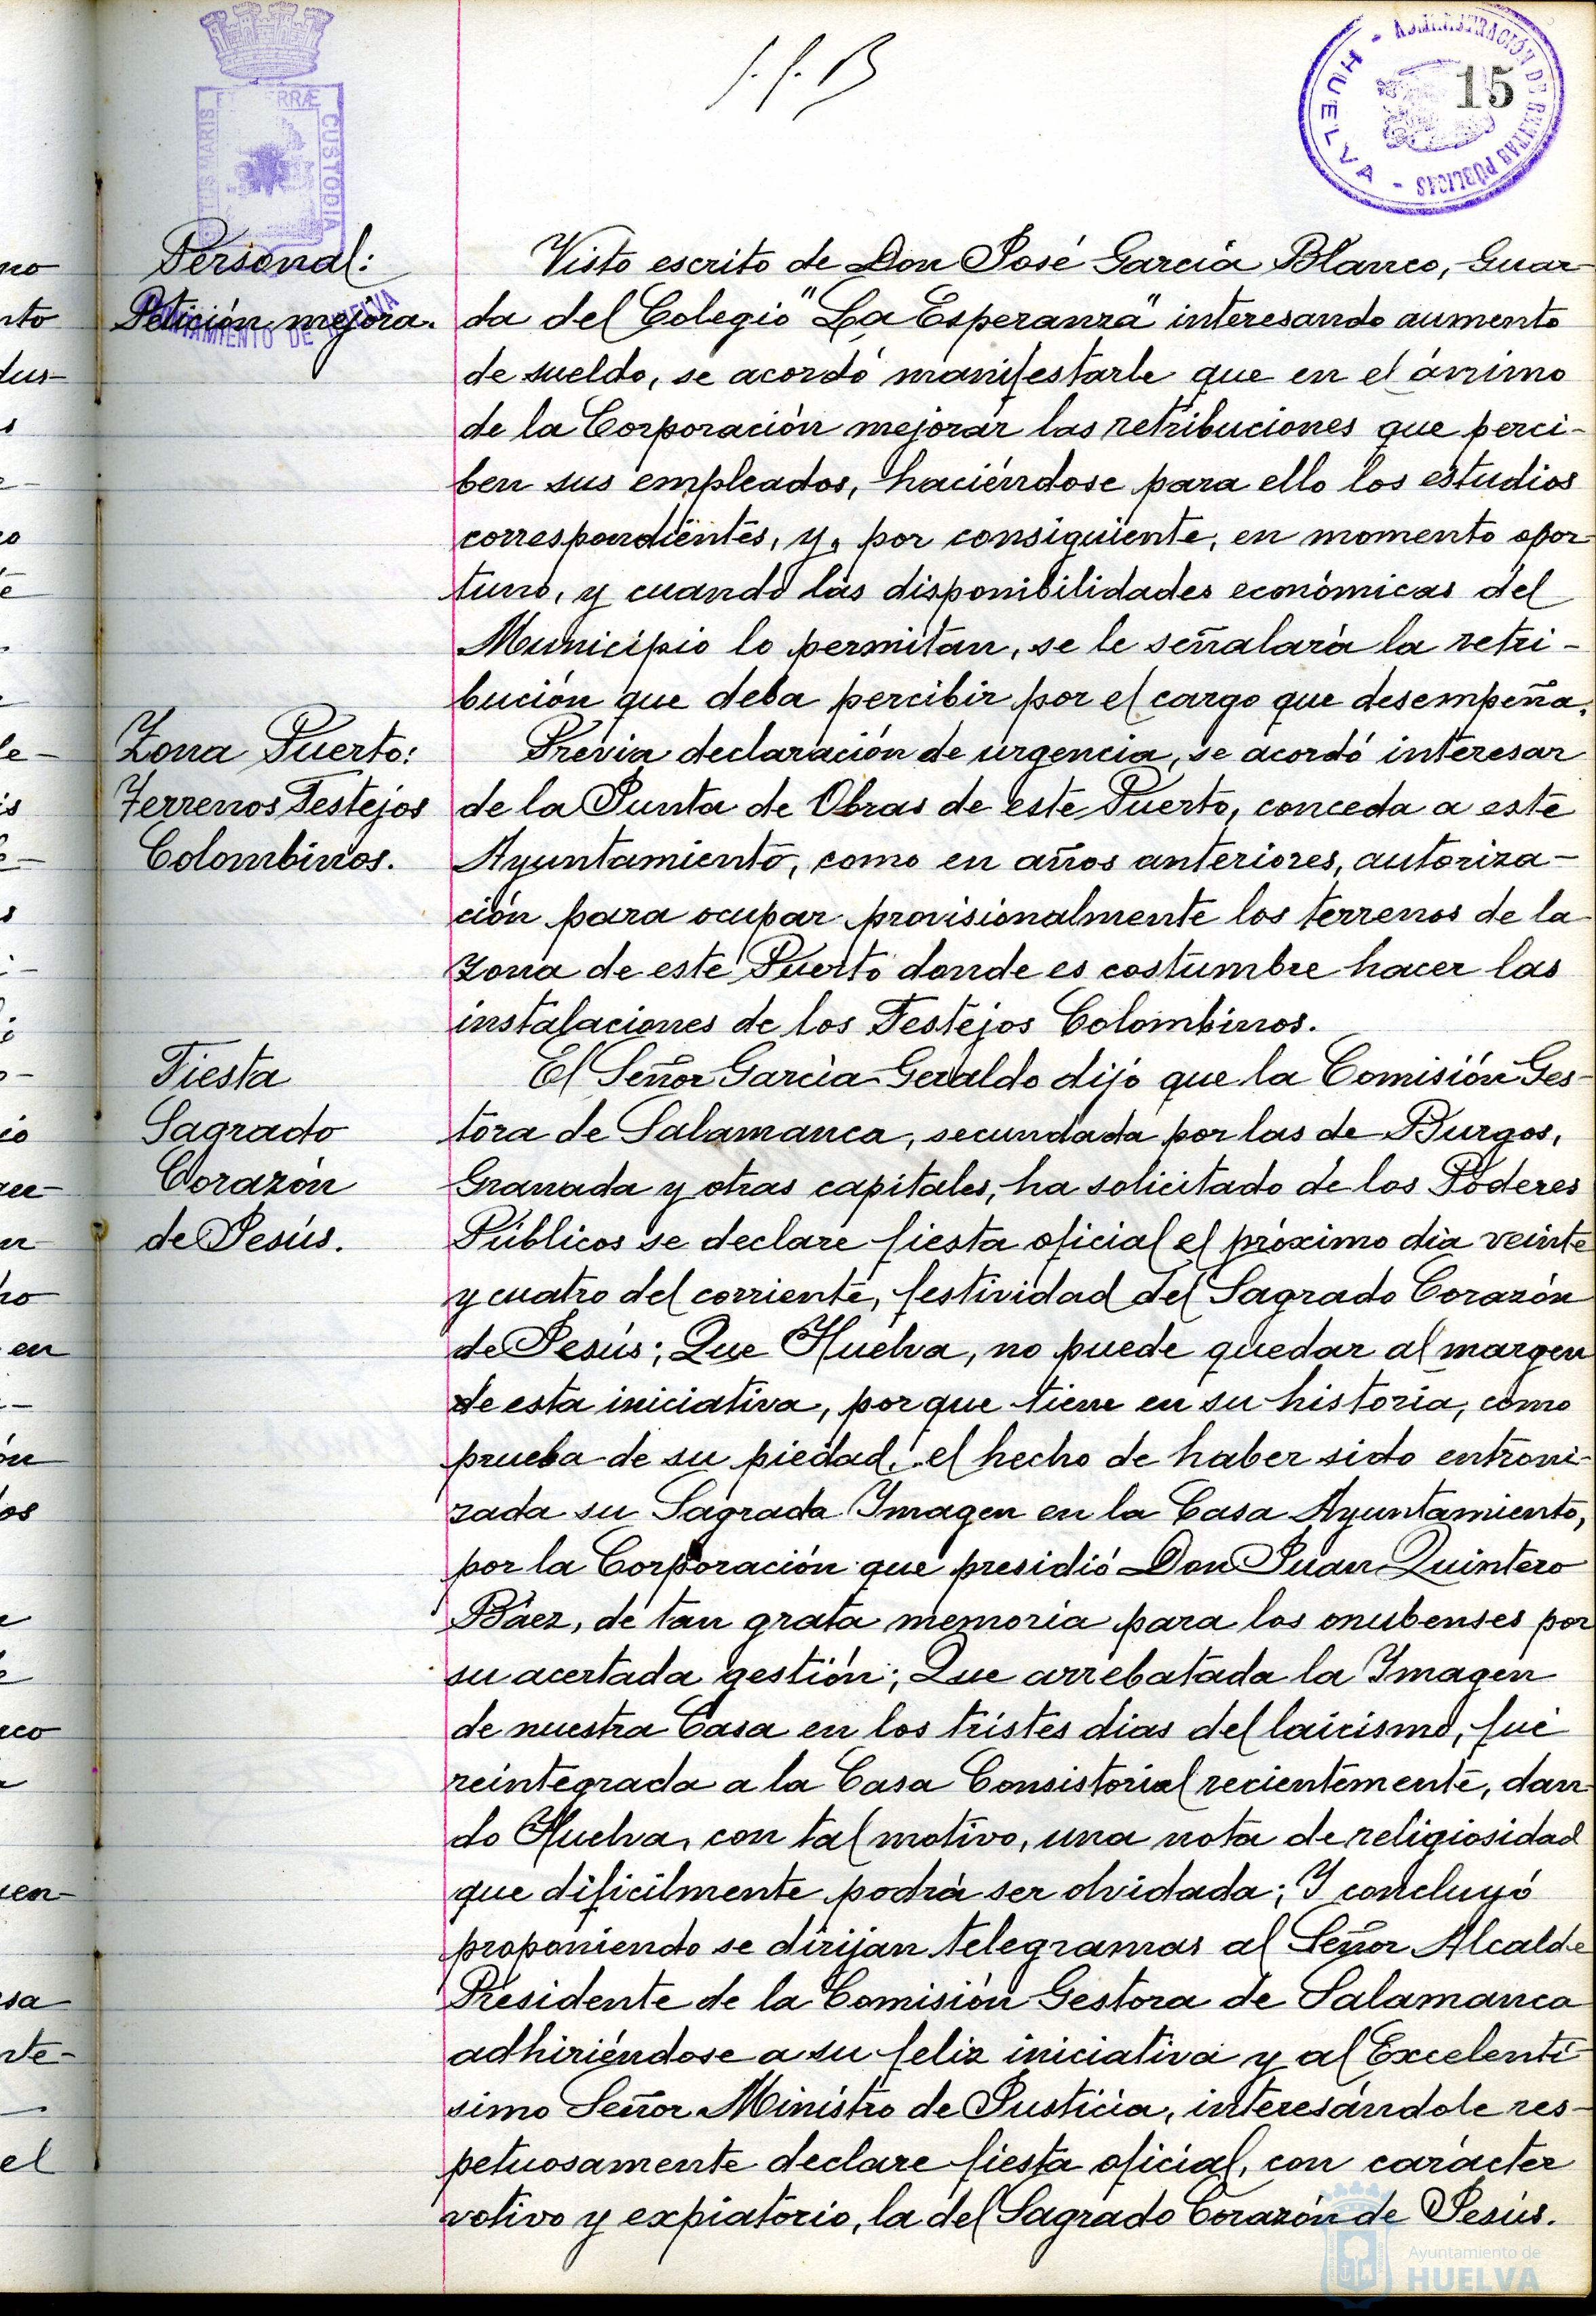 15
ADMINISTRACIÓN DE RENTAS PÚBLICAS - HUELVA -
PORTUS MARIS ET TERRÆ CUSTODIA
AYUNTAMIENTO DE HUELVA
Personal:
Petición mejora.
Visto escrito de Don José García Blanco, Guar-
da del Colegio "La Esperanza" interesando aumento
de sueldo, se acordó manifestarle que en el ánimo
de la Corporación mejorar las retribuciones que perci-
ben sus empleados, haciéndose para ello los estudios
correspondientes, y, por consiguiente, en momento opor-
tuno, y cuando las disponibilidades económicas del
Municipio lo permitan, se le señalará la retri-
bución que deba percibir por el cargo que desempeña.
Zona Puerto:
Terrenos Festejos
Colombinos.
Previa declaración de urgencia, se acordó interesar
de la Junta de Obras de este Puerto, conceda a este
Ayuntamiento, como en años anteriores, autoriza-
ción para ocupar provisionalmente los terrenos de la
zona de este Puerto donde es costumbre hacer las
instalaciones de los Festejos Colombinos.
Fiesta
Sagrado
Corazón
de Jesús.
El Señor García Geraldo dijo que la Comisión Ges-
tora de Salamanca, secundada por las de Burgos,
Granada y otras capitales, ha solicitado de los Poderes
Públicos se declare fiesta oficial el próximo dia veinte
y cuatro del corriente, festividad del Sagrado Corazón
de Jesús; Que Huelva, no puede quedar al margen
de esta iniciativa, porque tiene en su historia, como
prueba de su piedad, el hecho de haber sido entroni-
zada su Sagrada Imagen en la Casa Ayuntamiento,
por la Corporación que presidió Don Juan Quintero
Báez, de tan grata memoria para los onubenses por
su acertada gestión; Que arrebatada la Imagen
de nuestra Casa en los tristes dias del laicismo, fué
reintegrada a la Casa Consistorial recientemente, dan-
do Huelva, con tal motivo, una nota de religiosidad
que dificilmente podrá ser olvidada; Y concluyó
proponiendo se dirijan telegramas al Señor Alcalde
Presidente de la Comisión Gestora de Salamanca
adhiriéndose a su feliz iniciativa y al Excelentí-
simo Señor Ministro de Justicia, interesándole res-
petuosamente declare fiesta oficial, con carácter
votivo y expiatorio, la del Sagrado Corazón de Jesús.
Ayuntamiento de
HUELVA